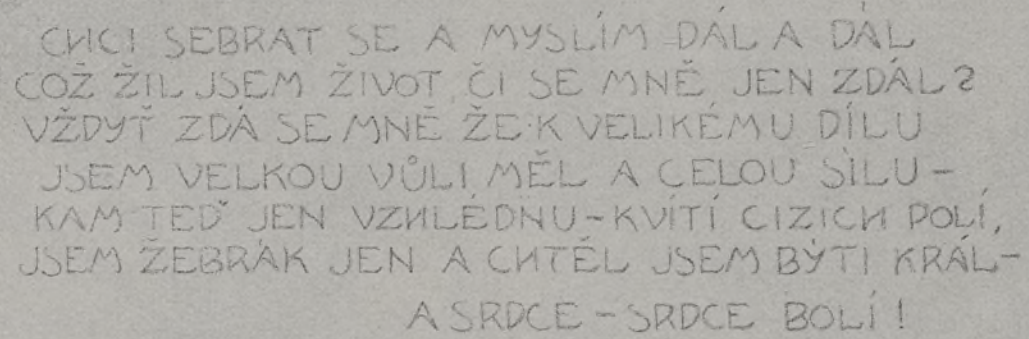 CHCI SEBRAT SE A MYSLÍM DÁL A DÁL
COŽ ŽIL JSEM ŽIVOT, ČI SE MNĚ JEN ZDÁL?
VŽDYŤ ZDÁ SE MNĚ ŽE K VELIKÉMU DÍLU
JSEM VELKOU VŮLI MĚL A CELOU SÍLU –
KAM TEĎ JEN VZHLÉDNU – KVÍTÍ CIZICH POLÍ,
JSEM ŽEBRÁK JEN A CHTĚL JSEM BÝTI KRÁL –
A SRDCE – SRDCE BOLÍ!